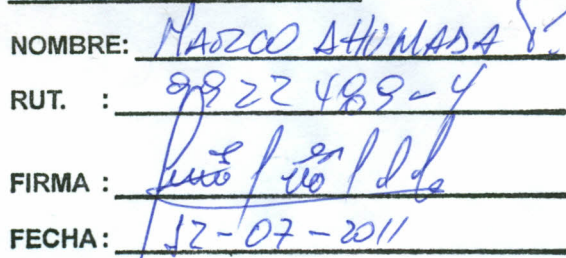 NOMBRE: MARCO AHUMADA V.
RUT. : 9922489-4
FIRMA :
FECHA: 12-07-2011